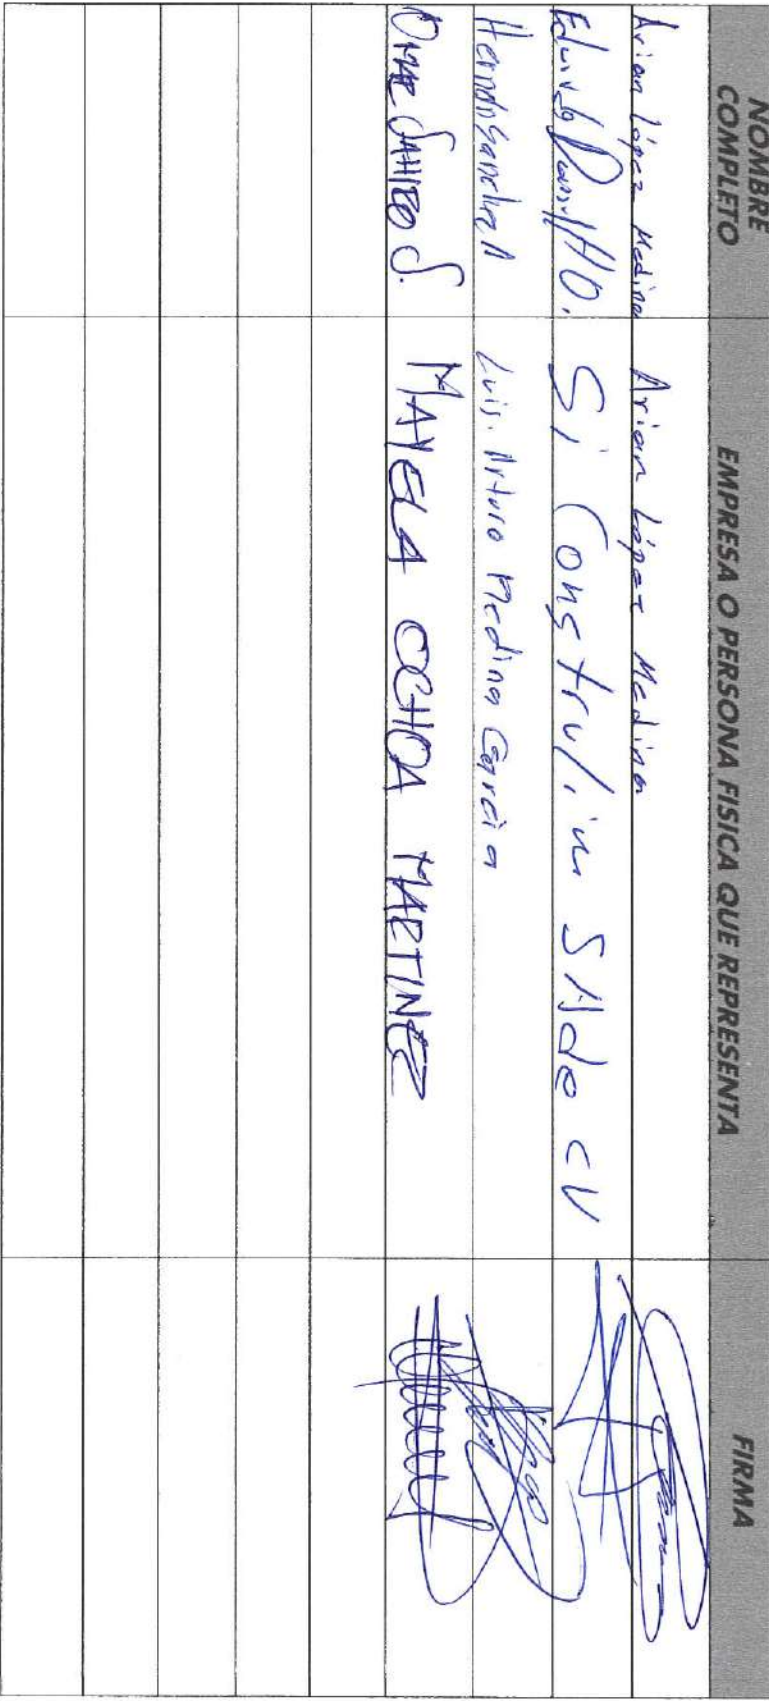 NOMBRE COMPLETO EMPRESA O PERSONA FISICA QUE REPRESENTA FIRMA
Arian López Medina Arian López Medina
Eduardo Si Construlim SA de CV
Luis. Arturo Medina García
OMAR S. MAYELA OCHOA MARTINEZ